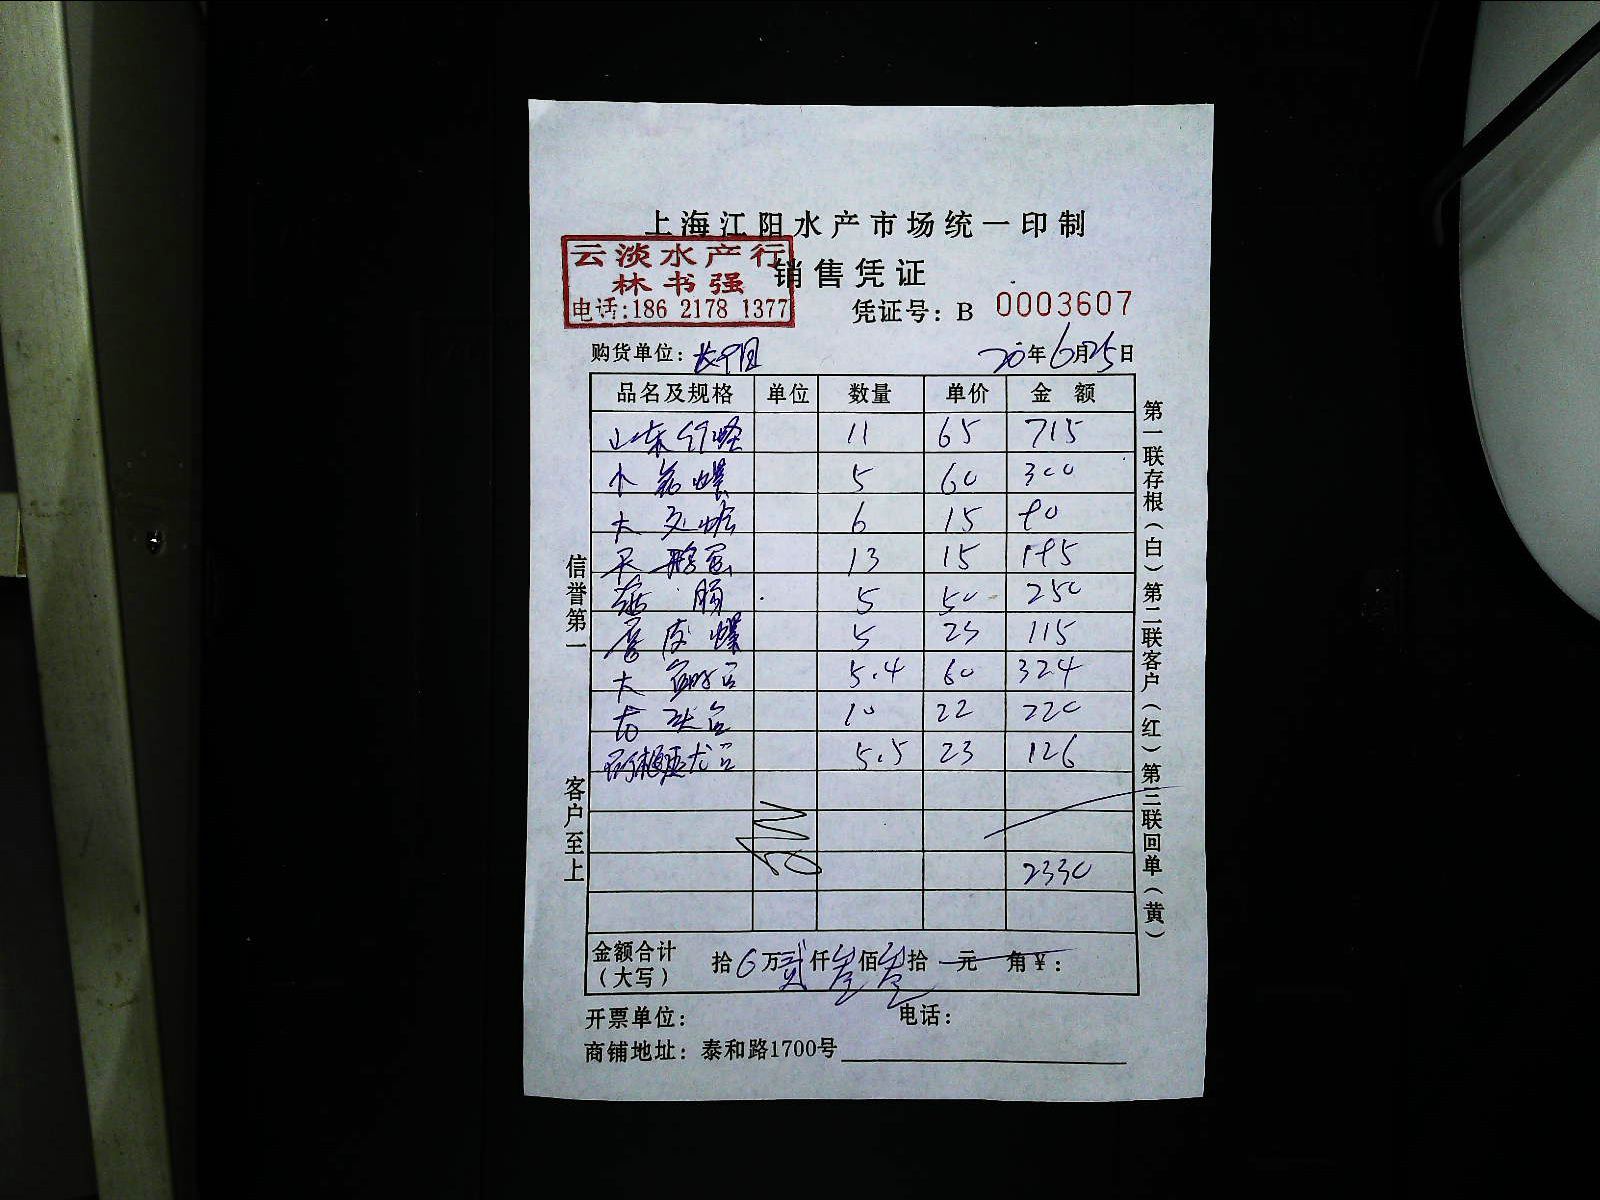 上海江阳水产市场统一印制
云淡水产行
林书强
电话:186 2178 1377
销售凭证
凭证号：B 0003607
购货单位：
20年6月25日
品名及规格 单位 数量 单价 金额
山东 11 65 715
小 螺 5 60 300
大 文蛤 6 15 90
13 15 195
5 50 250
皮螺 5 23 115
大 5.4 60 324
10 22 220
5.5 23 126
2330
金额合计（大写） 拾 万贰仟叁佰叁拾 元 角¥：
开票单位： 电话：
商铺地址：泰和路1700号
信誉第一 客户至上
第一联存根（白）第二联客户（红）第三联回单（黄）